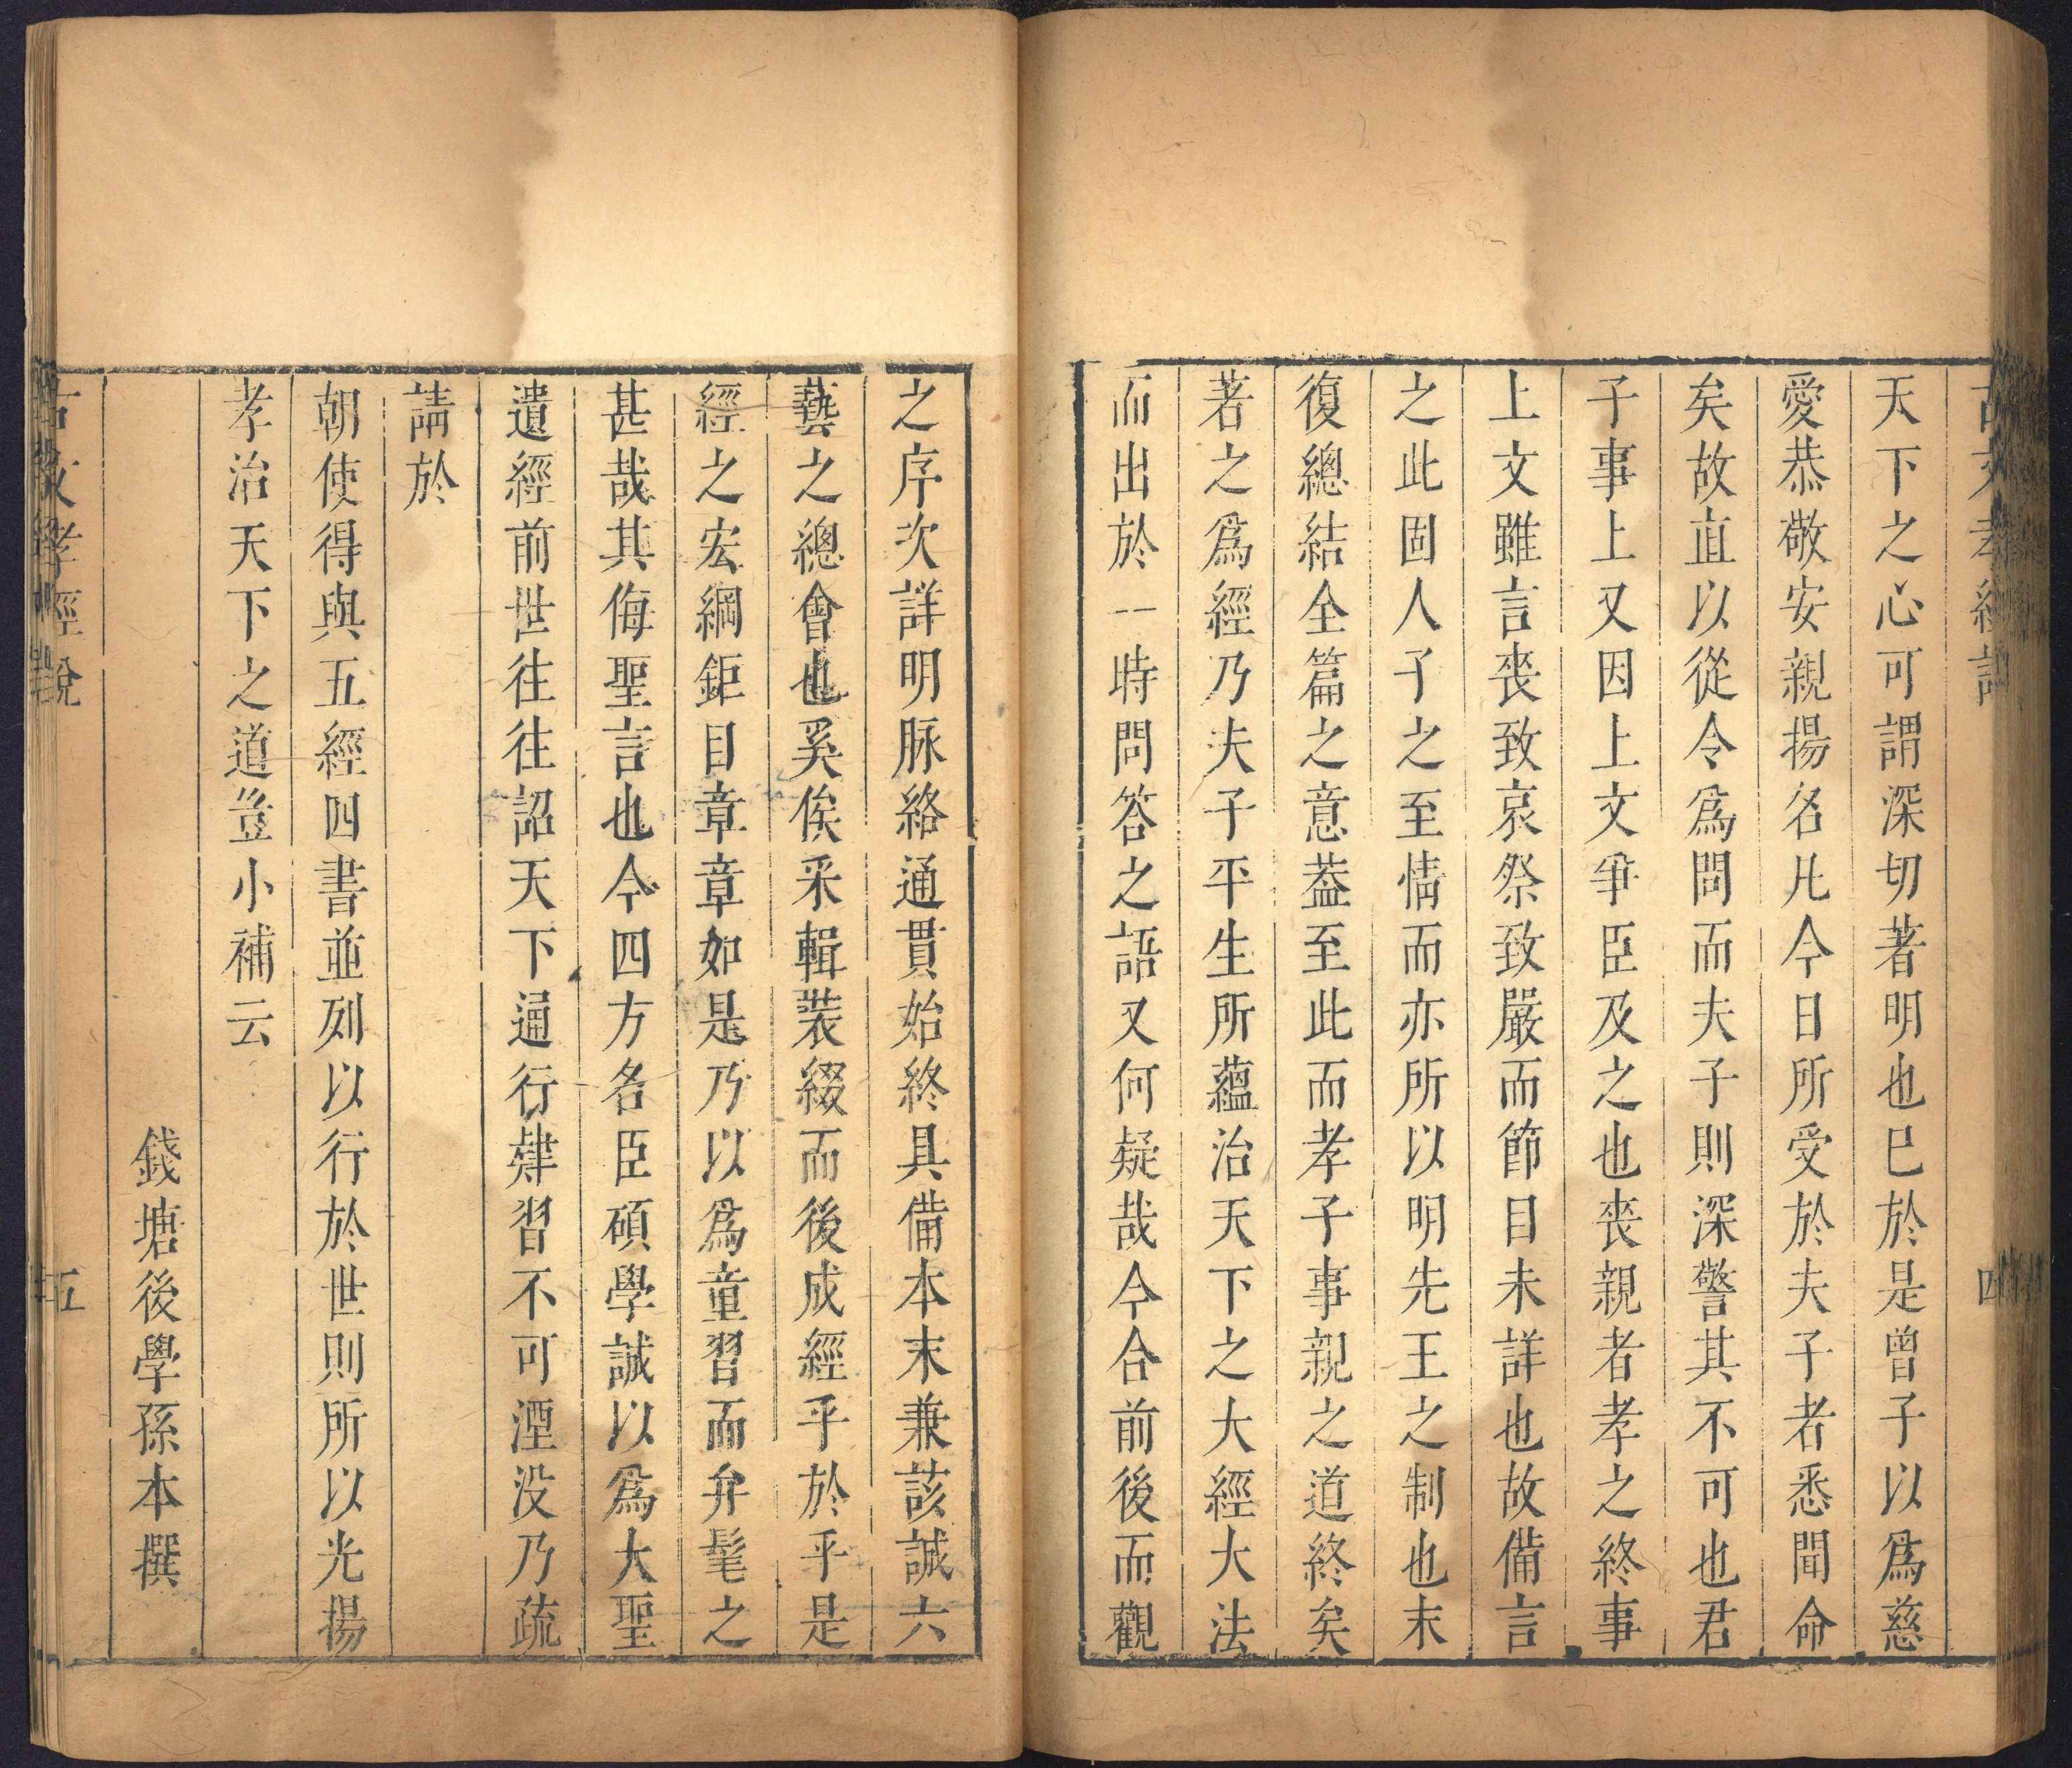 天下之心可謂深切著明也巳於是曾子以爲慈
愛恭敬安親揚名凡今日所受於夫子者悉聞命
矣故直以從令爲問而夫子則深警其不可也君
子事上又因上文爭臣及之也喪親者孝之終事
上文雖言喪致哀祭致嚴而節目未詳也故備言
之此固人子之至情而亦所以明先王之制也末
復總結全篇之意葢至此而孝子事親之道終矣
著之爲經乃夫子平生所蘊治天下之大經大法
而出於一時問答之語又何疑哉今合前後而觀
之序次詳明脉絡通貫始終具備本末兼該誠六
藝之總會也奚俟采輯裝綴而後成經乎於乎是
經之宏綱鉅目章章如是乃以爲童習而弁髦之
甚哉其侮聖言也今四方各臣碩學誠以爲大聖
遺經前世往往詔天下通行肄習不可湮没乃疏
請於
朝使得與五經四書並列以行於世則所以光揚
孝治天下之道豈小補云
錢塘後學孫本撰
古文孝經說
五